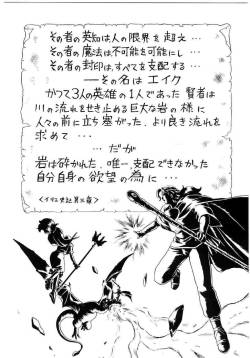 その者の英知は人の限界を超え…
その者の魔法は不可能を可能にし…
その者の封印は、すべてを支配する…
──その名は エイク
かつて3人の英雄の1人であった 賢者は
川の流れをせき止める巨大な岩の様に
人々の前に立ち塞がった、より良き流れを
求めて・・・
…だが
岩は砕かれた、唯一、支配できなかった
自分自身の欲望の為に…